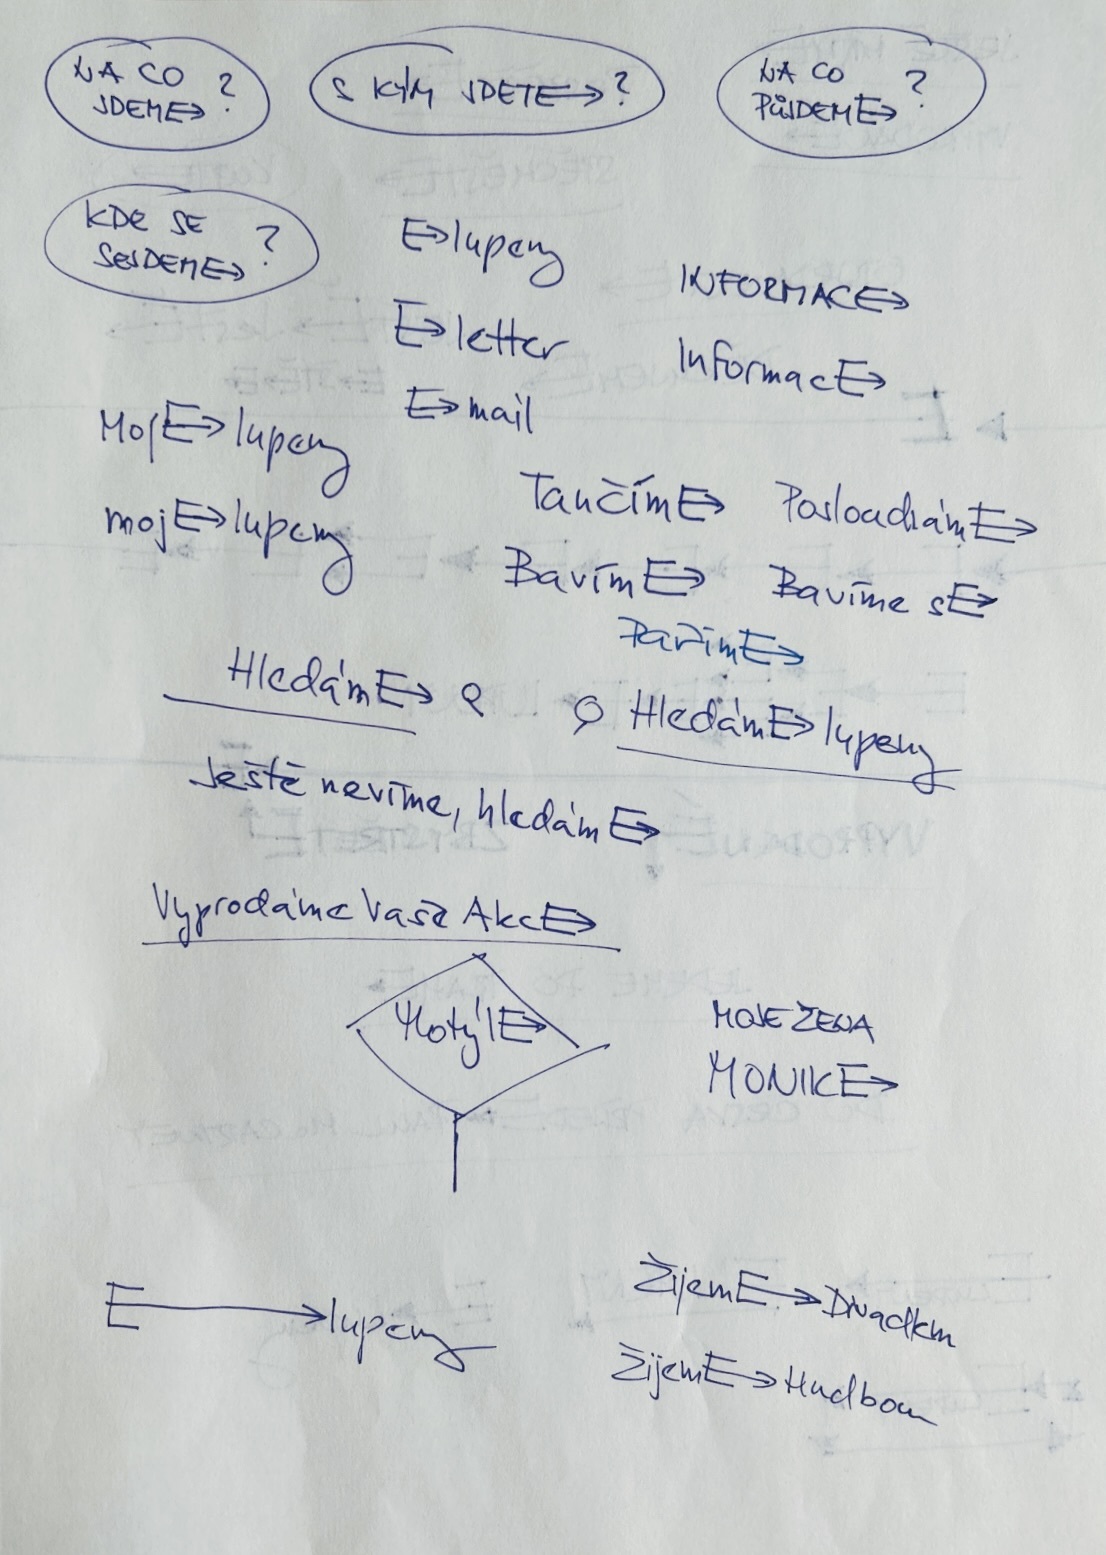 NA CO
JDEME→ ?
S KÝM JDETE→?
NA CO
PŮJDEME→ ?
KDE SE
SEJDEME→ ?
E→lupeny
E→letter
E→mail
INFORMACE→
InformacE→
MojE→lupeny
mojE→lupeny
TančímE→
Posloucháme→
BavímE→
Bavíme sE→
PařímE→
HledámE→
HledámE→lupeny
Ještě nevíme, hledámE→
Vyprodáme Vaše AkcE→
MotýlE→
MOJE ŽENA
MONIKE→
E→lupeny
ŽijemE→Divadlem
ŽijemE→Hudbou